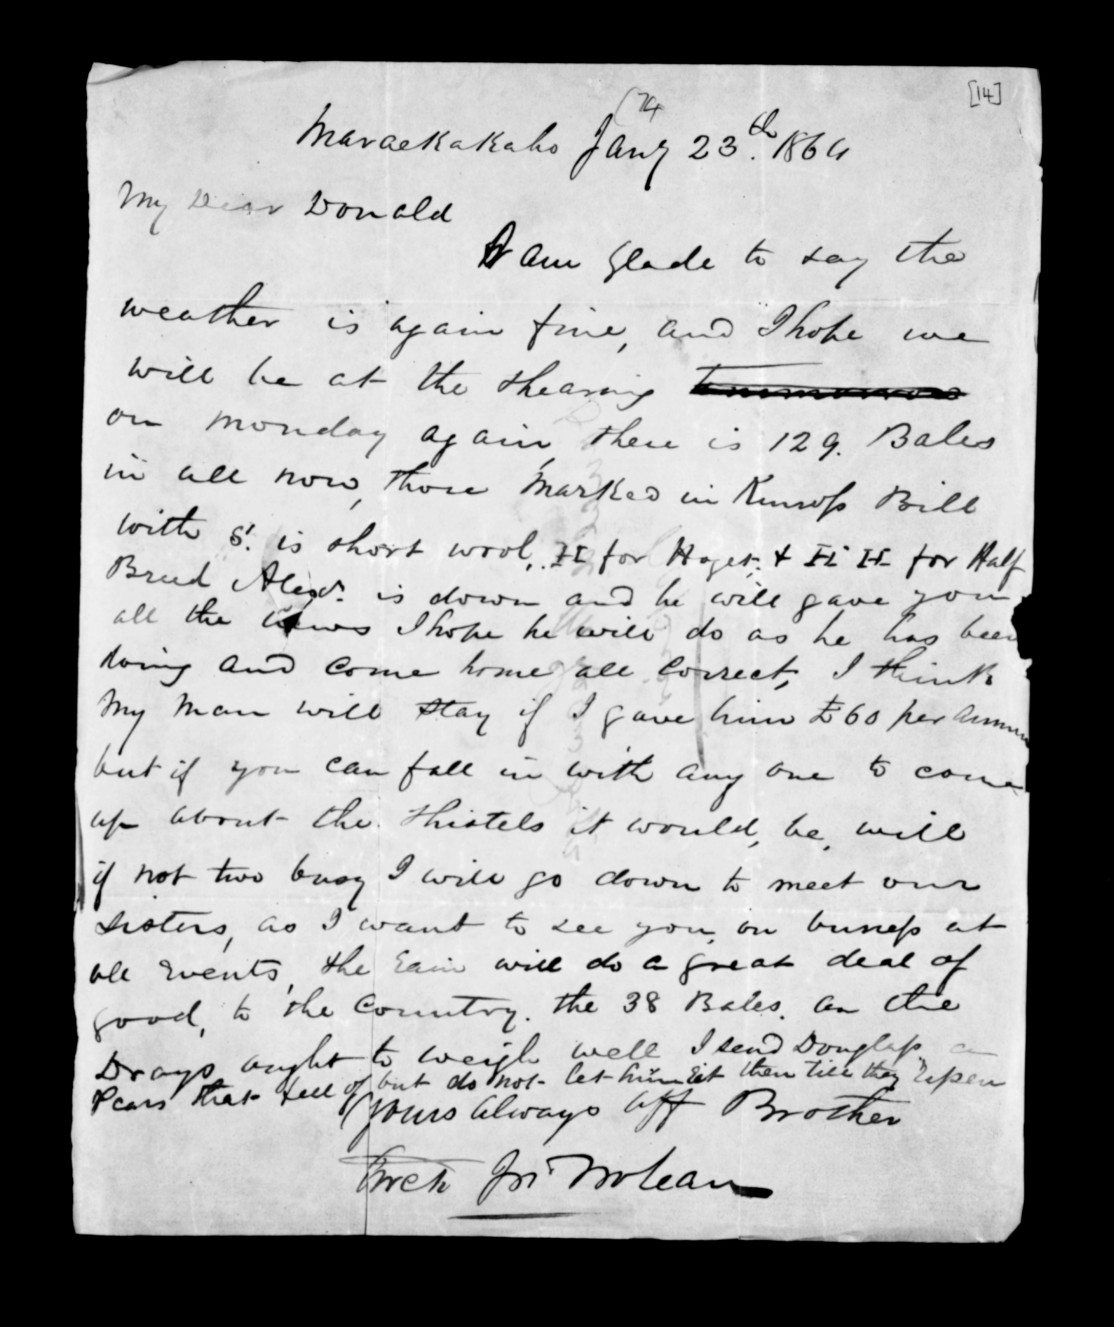 [14]
Maraekakaho Jany 23th. 1864
My Dear Donald
I am glade to say the
weather is again fine, and I hope we
will be at the shearing
on monday again, there is 129. Bales
in all now, those Marked in Kinross Bill
with S. is short wool, H for Hoget. & H H for Half
Breed Alexr. is down and he will gave you
all the news I hope he will do as he has been
doing and come home all correct, I think
My Man will stay if I gave him £60 per annum
but if you can fall in with any one to come
up about the thistels it would, be, will
if not two busy I will go down to meet our
sisters, as I want to see you, on buness at
all Events, the Eain will do a great deal of
good, to the Country. the 38 Bales. on the
Drays ought to weigh well I send Douglass a
Pears that fell of but do not let him Eit then till they Ripen
Yours always aff Brother
Arch Jn McLean